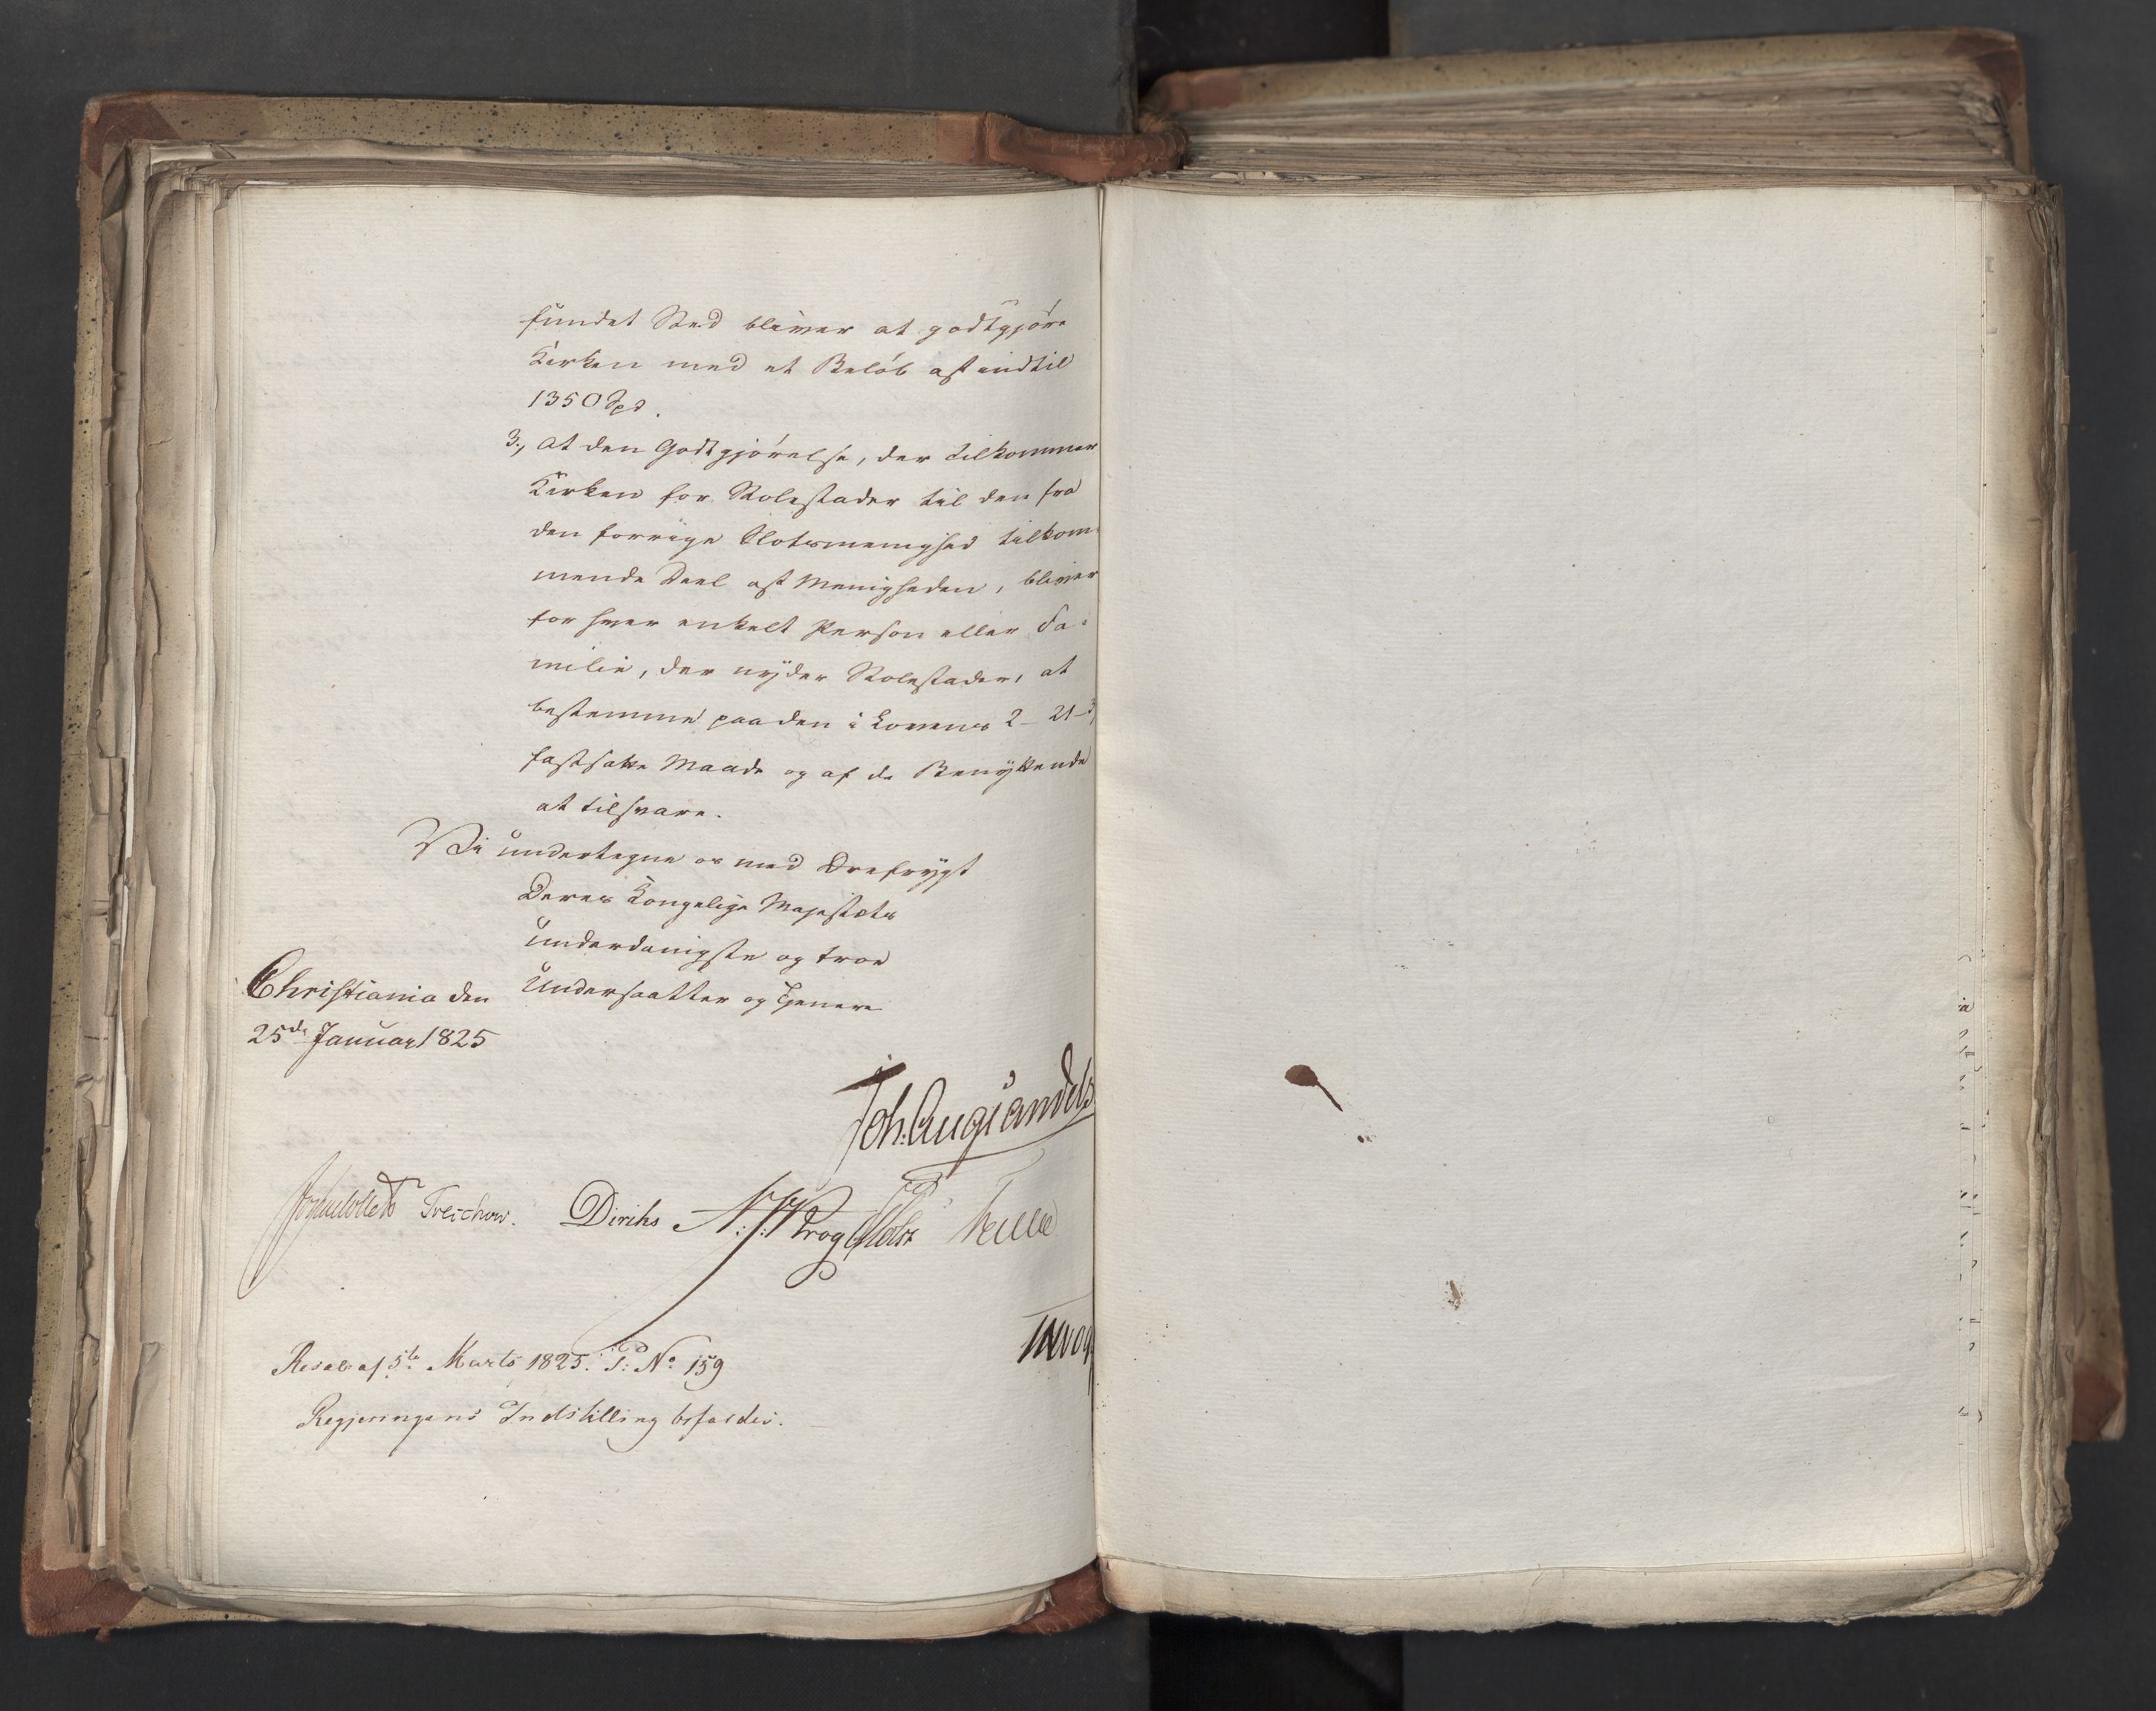 fundet Sted bliver at godtgjøre
Kirken med et Beløb af indtil
1350 Spd.
3., at den Godtgjørelse, der tilkommer
Kirken for Stolestader til den fra
den forrige Slotsmenighed tilkom-
mende Deel af Menigheden, bliver
for hver enkelt Person eller Fa-
milie, der nyder Stolestader, at
bestemme paa den i Lovens 2-21-3,
fastsatte Maade og af de Benyttende
at tilsvare.
Vi undertegne os med Ærefrygt
Deres Kongelige Majestæts
underdanigste og troe
Undersaatter og Tjenere
Christiania den
25de Januar 1825
Joh. Aug: Sandels
Jonas Collett Treschow. Diriks N: J: Krog Holst
Resol: af 5te Marts 1825. P: No 159
Regjeringens Indstilling bifaldes.